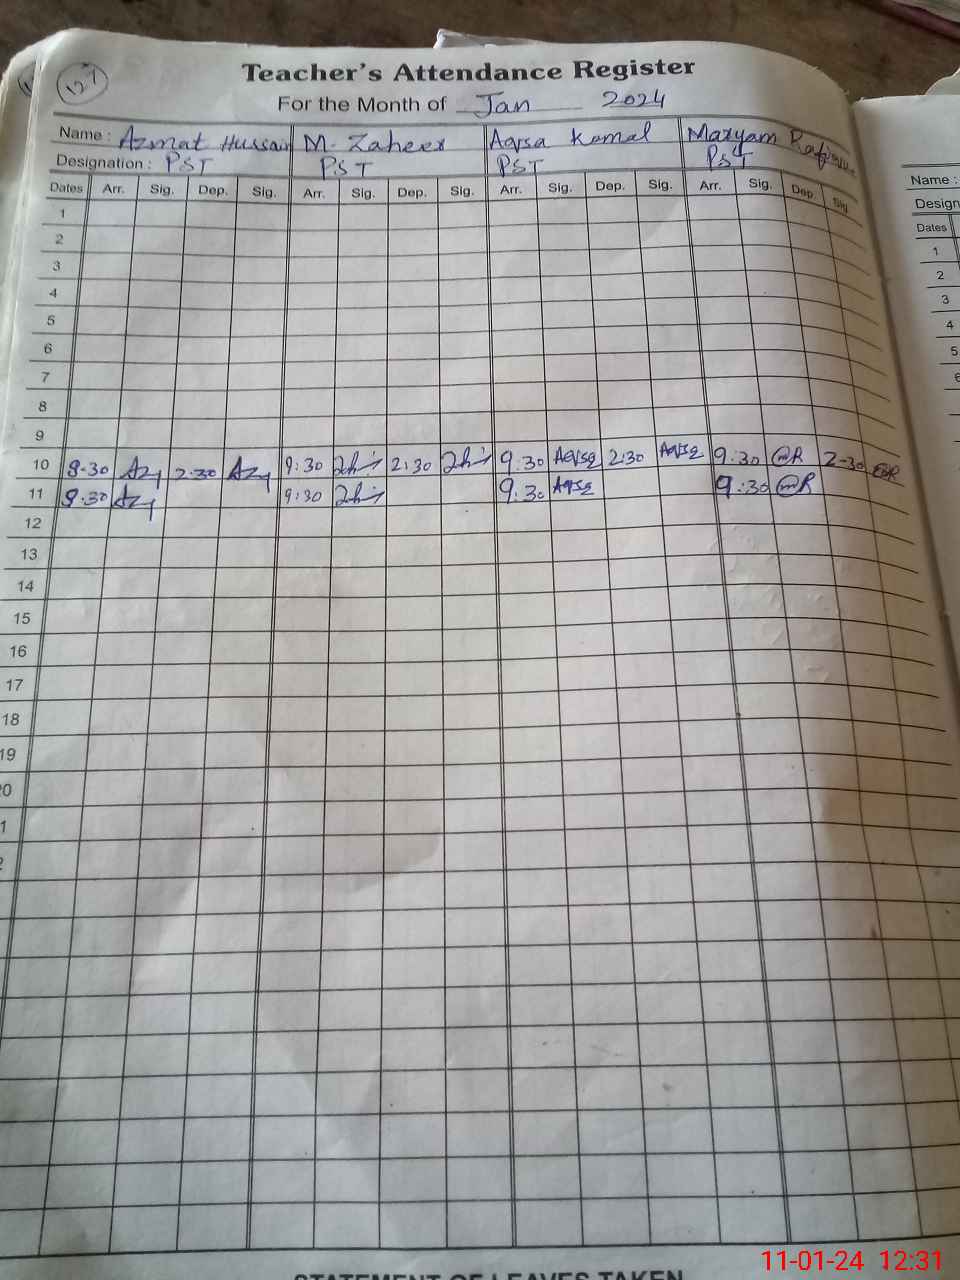 127
Teacher's Attendance Register
For the Month of Jan 2024
Name : Azmat Hussain M. Zaheer Aqsa Kamal Maryam
Designation : PST PST PST PST
Dates Arr. Sig. Dep. Sig. Arr. Sig. Dep. Sig. Arr. Sig. Dep. Sig. Arr. Sig. Dep. Sig.
1
2
3
4
5
6
7
8
9
10 8-30 2-30 9:30 2:30 9:30 Aqsa 2:30 Aqsa 9:30 2-30
11 8-30 9:30 9:30 Aqsa 9:30
12
13
14
15
16
17
18
19
Name :
Design
Dates
1
2
3
4
5
6
STATEMENT OF LEAVES TAKEN
11-01-24 12:31